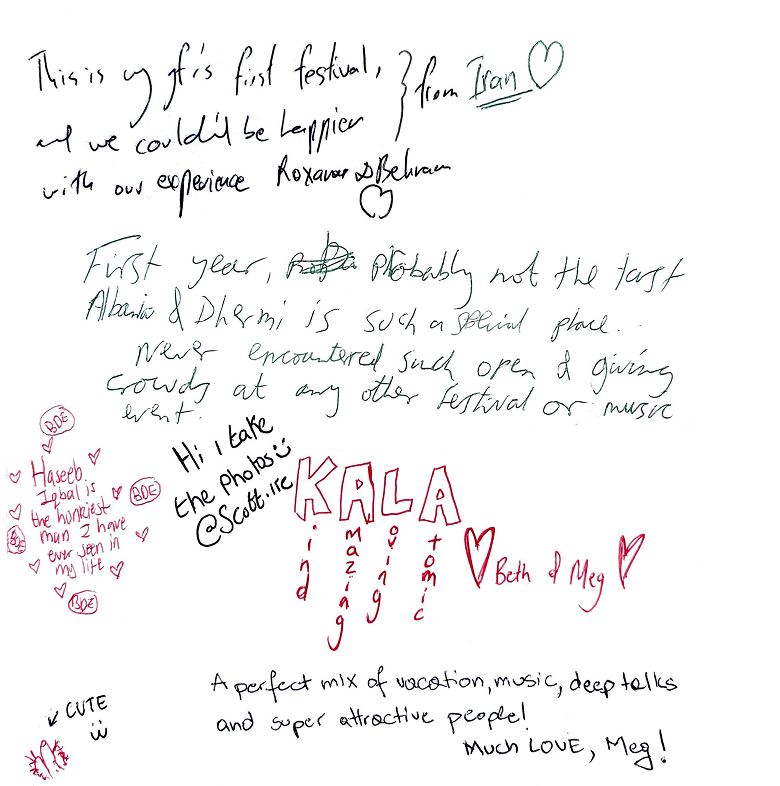 This is my gf's first festival,
and we could'd be happier
with our experience Roxana & Behram
from Iran
First year, probably not the last
Albania & Dhermi is such a special place..
Never encountered such open & giving
crowds at any other festival or music
event.
BDE
Haseeb
Iqbal is
the hunkiest
man I have
ever seen in
my life
BDE
BDE
BDE
Hi I take
the photos
@Scott.irc
KALA
Kind
Amazing
Loving
Atomic
Beth & Meg
CUTE
A perfect mix of vacation, music, deep talks
and super attractive people!
Much LOVE, Meg!